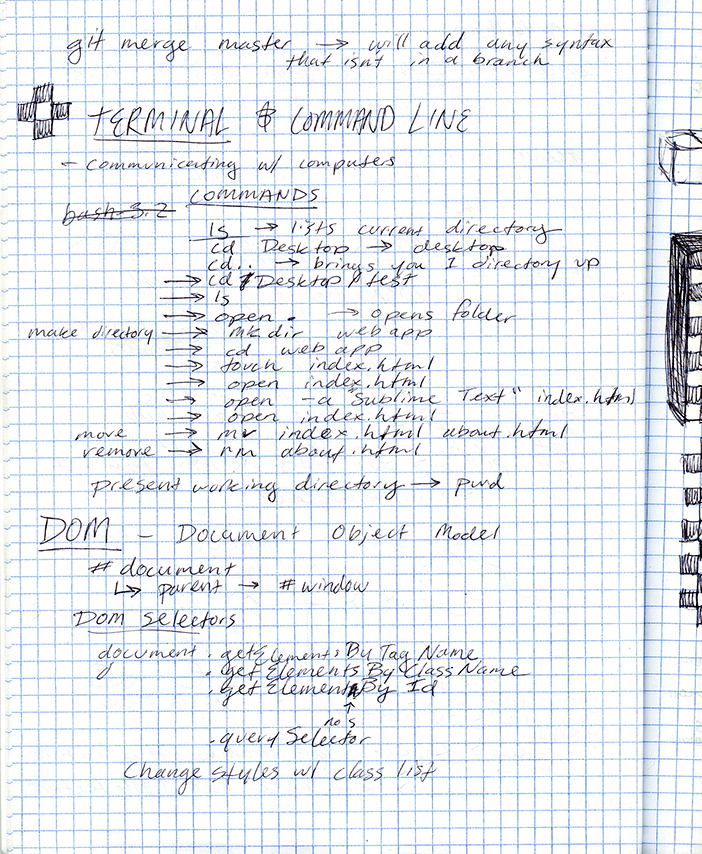 git merge master → will add any syntax
that isnt in a branch
TERMINAL & COMMAND LINE
- communicating w/ computers
COMMANDS
bash-3.2
ls → lists current directory
cd Desktop → desktop
cd.. → brings you 1 directory up
→ cd Desktop/test
→ ls
→ open . → opens folder
make directory → mkdir webapp
→ cd webapp
→ touch index.html
→ open index.html
→ open -a "Sublime Text" index.html
→ open index.html
move → mv index.html about.html
remove → rm about.html
present working directory → pwd
DOM - Document Object Model
# document
↳ parent → # window
DOM Selectors
document . getElementsByTagName
. getElementsByClassName
. getElementById
↑
no s
. querySelector
Change styles w/ class list